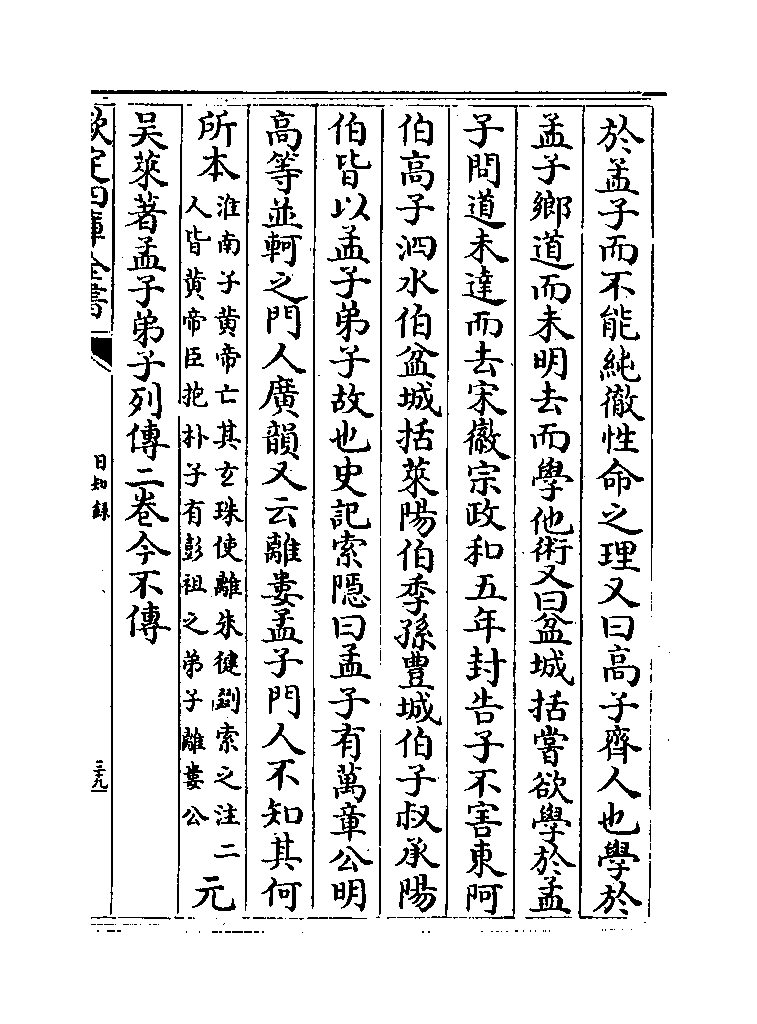 於孟子而不能純徹性命之理又曰高子齊人也學於
孟子鄉道而未明去而學他術又曰盆城括嘗欲學於孟
子問道未達而去宋徽宗政和五年封告子不害東阿
伯高子泗水伯盆城括萊陽伯季孫豐城伯子叔承陽
伯皆以孟子弟子故也史記索隱曰孟子有萬章公明
高等並軻之門人廣韻又云離婁孟子門人不知其何
所本
淮南子黄帝亡其玄珠使離朱徤㓼索之注二
人皆黄帝臣抱朴子有彭祖之弟子離婁公
元
吳萊著孟子弟子列傳二卷今不傳
欽定四庫全書
日知錄